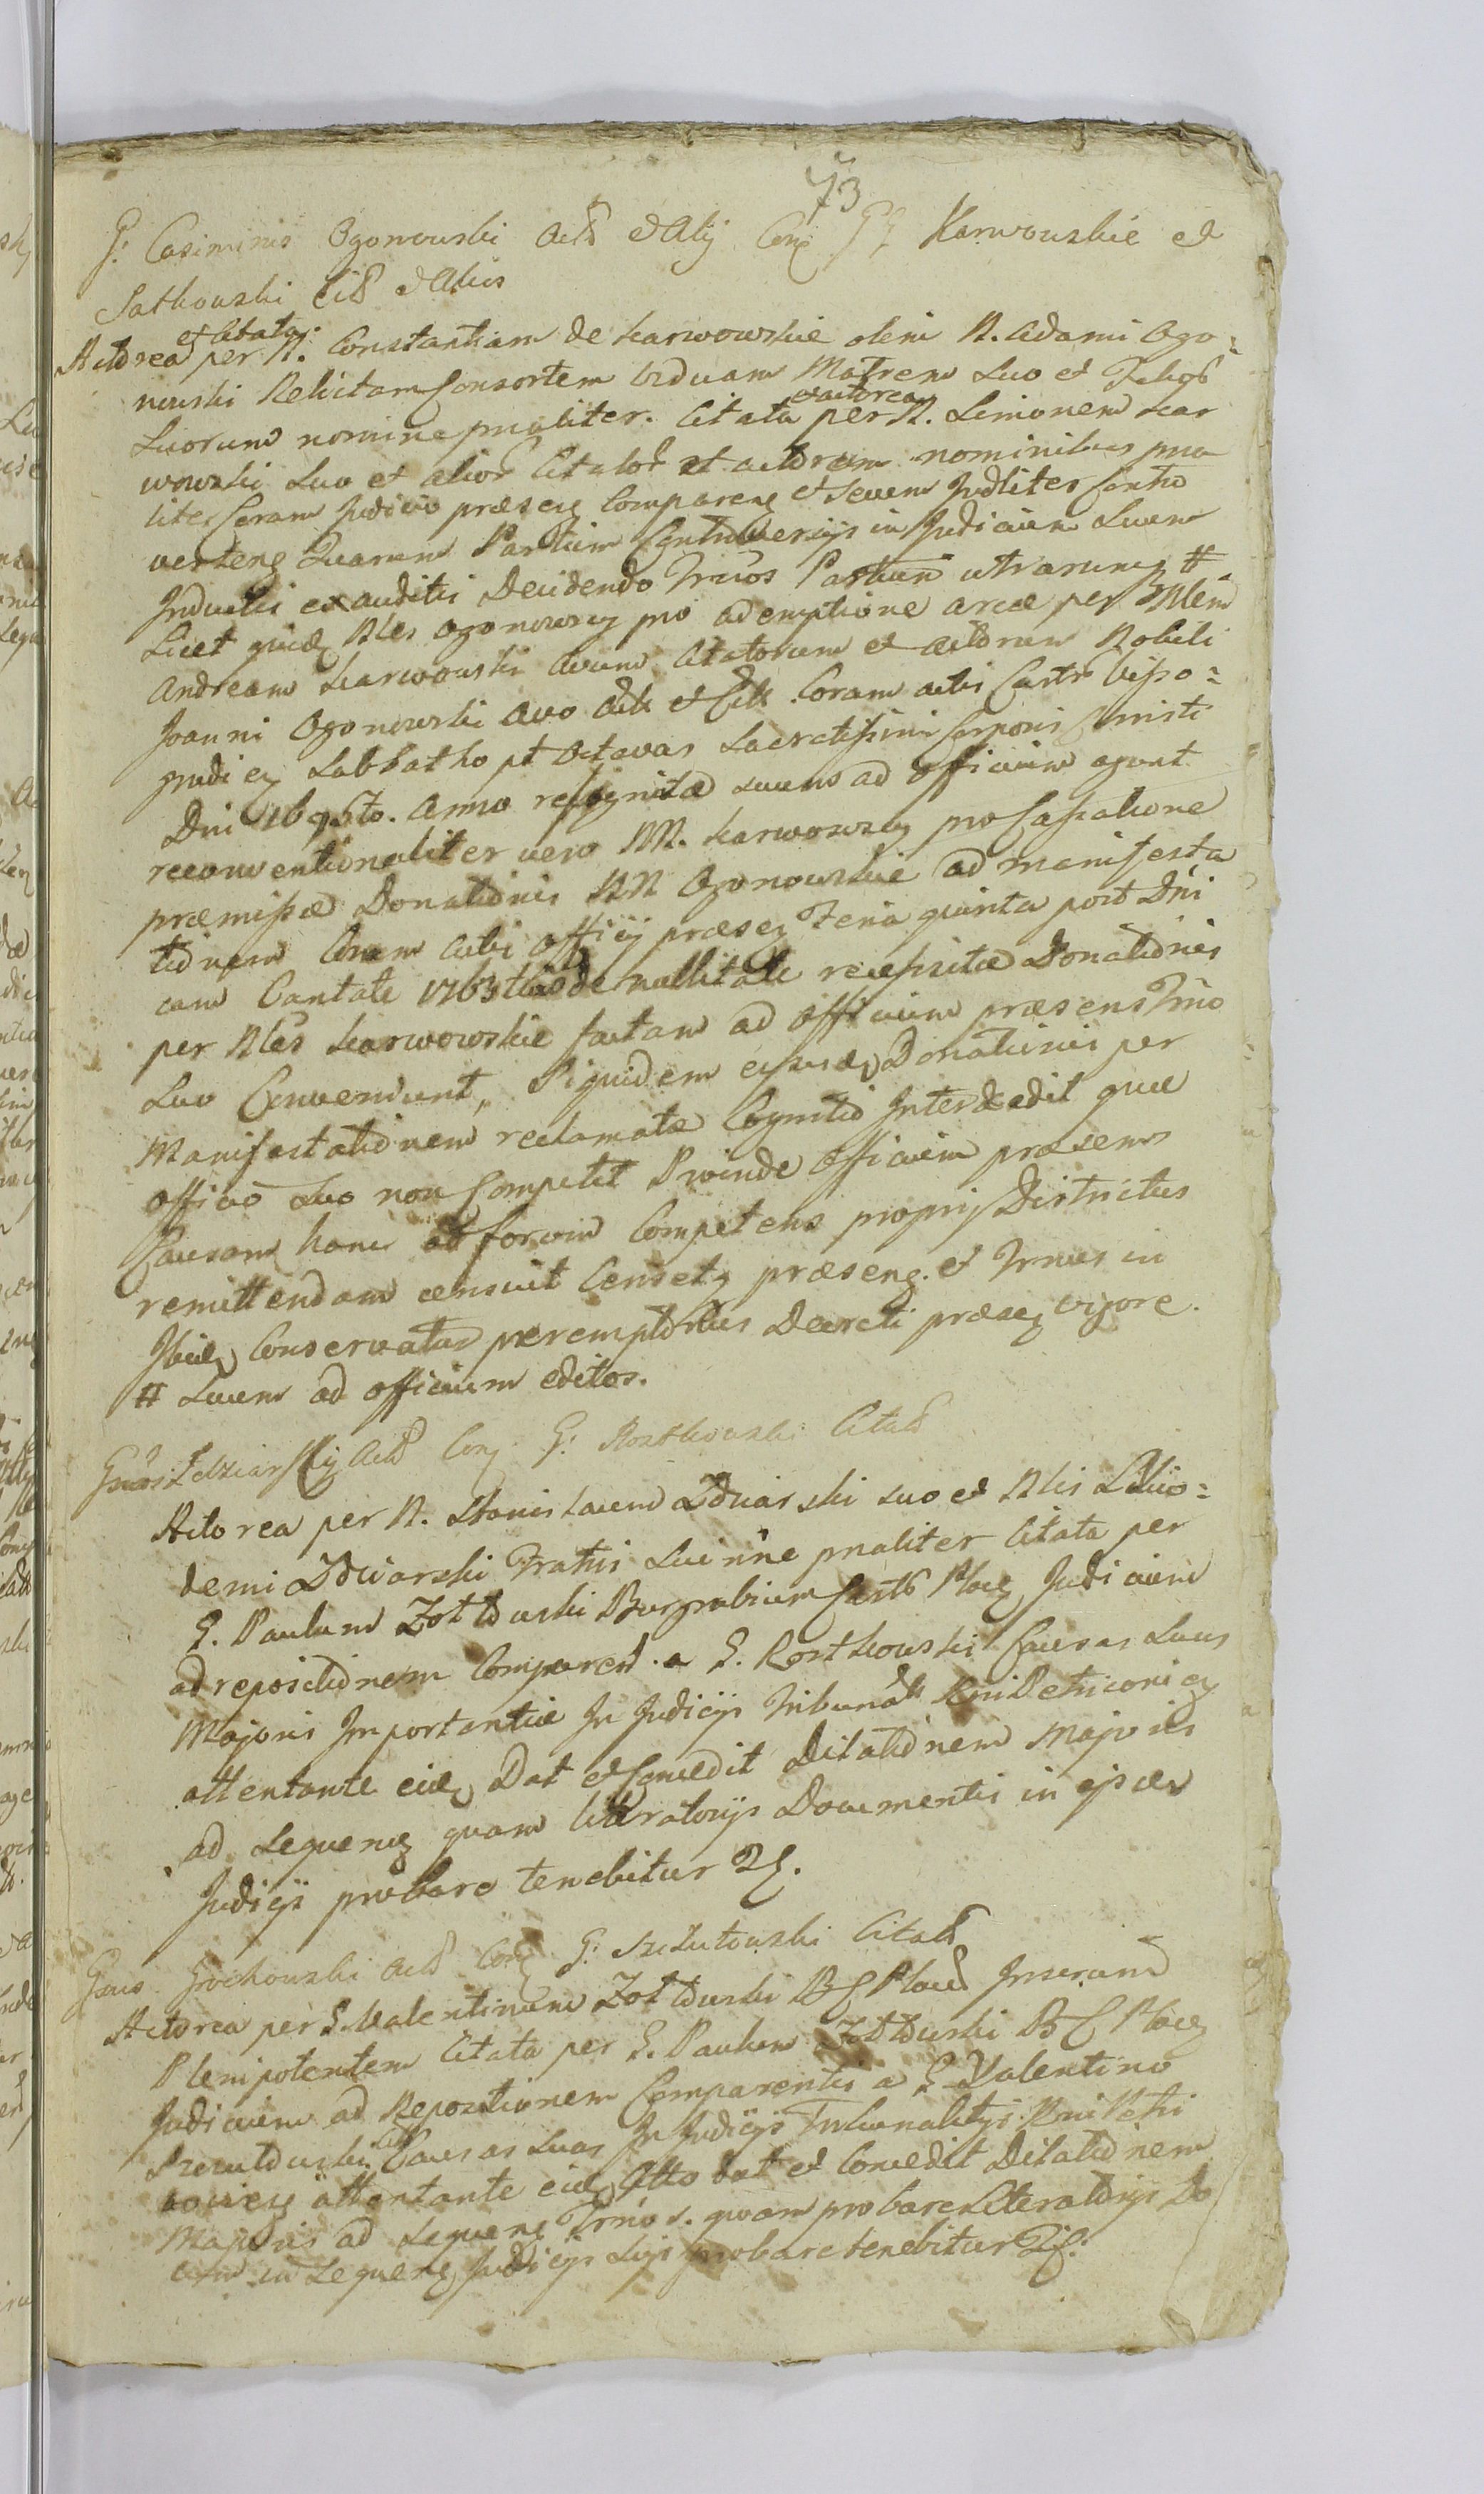 73
G: Casimirus Ogonowski Act et Alij Con GG Karwowskie et
Satkowski Cit et Aliis
et Citata
Actorea per N. Constantiam de Karwowskie olim N. Adami Ogo:
nowski Relictam Consortem Viduam Matrem Suo et Filiorum
et actorea
Suorum nomine pnaliter. Citata per N. Simonem Kar
wowski Suo et alior Citator et actorum nominibus pna
liter Coram Judicio præseng Compareng et Secum Judliter Contro
verteng Quarum Partium Controversijs in Judicium Suum
Inductis ex auditis Decidendo Trnos Partium utrarumq #
Licet quidem Nles Ogonowscy pro ademptione areæ per Nblem
Andream Karwowski Avum Citatorum et Actorum Nobili
Joanni Ogonowski Avo Act et Citt. Coram actis Castr Visso:
grudien Sabbatho pt Octavas Sacratissimi Corporis Christi
Dni 1695to. Anno recognitæ suum ad officium agunt
reconventionaliter vero NN. Karwowscy pro Cassatione
præmissæ Donationis NN Ogonowskie ad manifesta
tionem Coram actis officij præseg Feria quinta post Dni
cam Cantate 1763tio de nullitate recensitæ Donationis
per Nles Karwowskie factam ad officium præsens Trno
Suo Conveniunt, Siquidem ejusdem Donationis per
Manifestationem reclamatæ Cognitio Intercedit quæ
officio Suo non Competit Proinde officium præsens
Causam hanc ad forum Competens proprij Districtus
remittendam censuit Censetq præseng. et Trnus in
Ibidem Conservatur peremptorius Decreti præseg vigore.
# Suum ad officium editos.
Gnosi Zdziarscy Act Con G: Rostkowski Citat
Actorea per N. Stanislaum Zdziarski suo et Nlis
demi Zdziarski Fratris Sui nne pnaliter Citata per
G. Paulum Zołtowski Burgrabium Castr Plocen Judicium
ad repositionem Comparent. a G. Rostkowski Causas Suas
Majoris Importantiæ In Judicijs Tribunal Rni Petricovien
attentante eidem Dat et Concedit Dilationem Majoris
ad Sequeng quam literatorijs Documentis in ejsdem
Judicijs probare tenebitur
Gnus Grochowski Act Con G: Szelutowski Citat
Actorea per G. Valentinum Zołtowski B C Plocen Juratum
Plenipotentem Citata per G. Paulum Zołtowski B C Plocen
Judicium ad Repositionem Comparentis a G Valentino
Szelutowski Causas Suas In Judicijs Tribunalitijs Rni Petri
covien attentante eidem Citto dat et Concedit Dilationem
Majoris ad Sequeng Trnos. quam probare Literatorijs Do
cum in Sequeng Judicijs Suis probare tenebitur